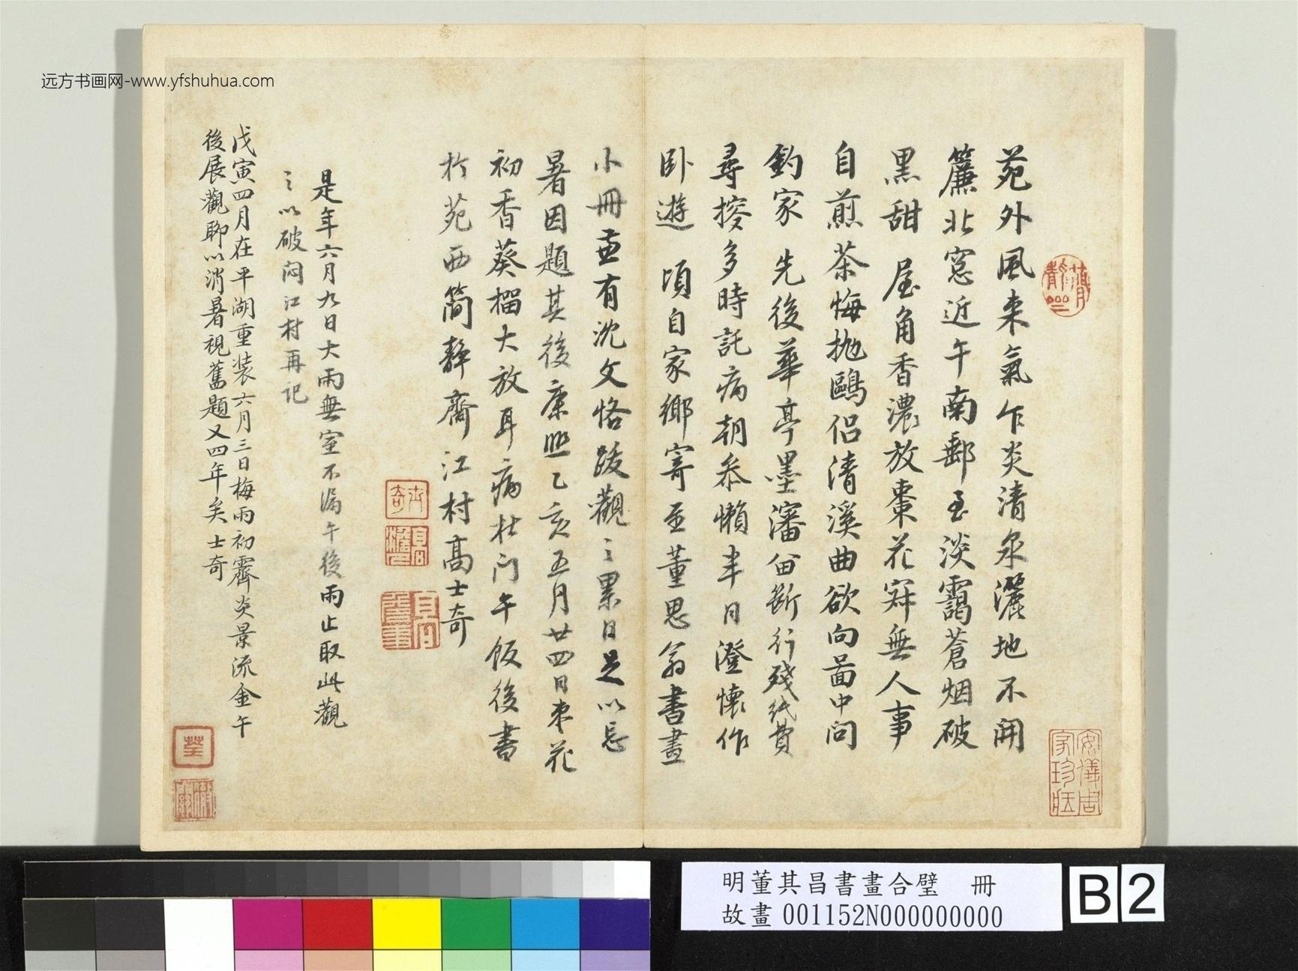 远方书画网-www.yfshuhua.com
苑外風来氣乍炎清泉灑地不開
簾北窓近午南郵至淡靄蒼烟破
黑甜 屋角香濃放棗花窣無人事
自煎茶悔抛鷗侣清溪曲欲向畐中問
釣家 先後華亭墨瀋畄斷行殘紙費
尋㩀多時託病朝叅懶半日澄懷作
卧遊 頃自家鄉寄至董思翁書畫
小冊並有沈文恪跋觀之累日足以忘
暑因題其後康熙乙亥五月廿四日棗花
初香葵榴大放耳病杜门午飯後書
於苑西简静齋江村高士奇
是年六月九日大雨無室不漏午後雨止取此觀
之以破闷江村再记
戊寅四月在平湖重装六月三日梅雨初霽炎景流金午
後展觀聊以消暑視舊題又四年矣士奇
安儀周
家珍藏
明董其昌書畫合璧 冊
故畫 001152N000000000
B2